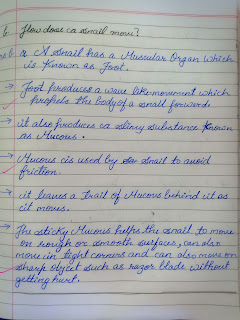 6. How does a snail move?
Ans 6. a A Snail has a Muscular Organ which
is Known as Foot.
→ Foot produces a wave like movement which
propels the body of a snail forward.
→ it also produces a Slimy Substance Known
as Mucous.
→ Mucous is used by Sn Snail to avoid
friction.
→ it leaves a Trail of Mucous behind it as
it moves.
→ The sticky Mucous helps the snail to move
on rough or smooth surfaces, can also
move in tight corners and can also move on
sharp object such as razor blade without
getting hurt.